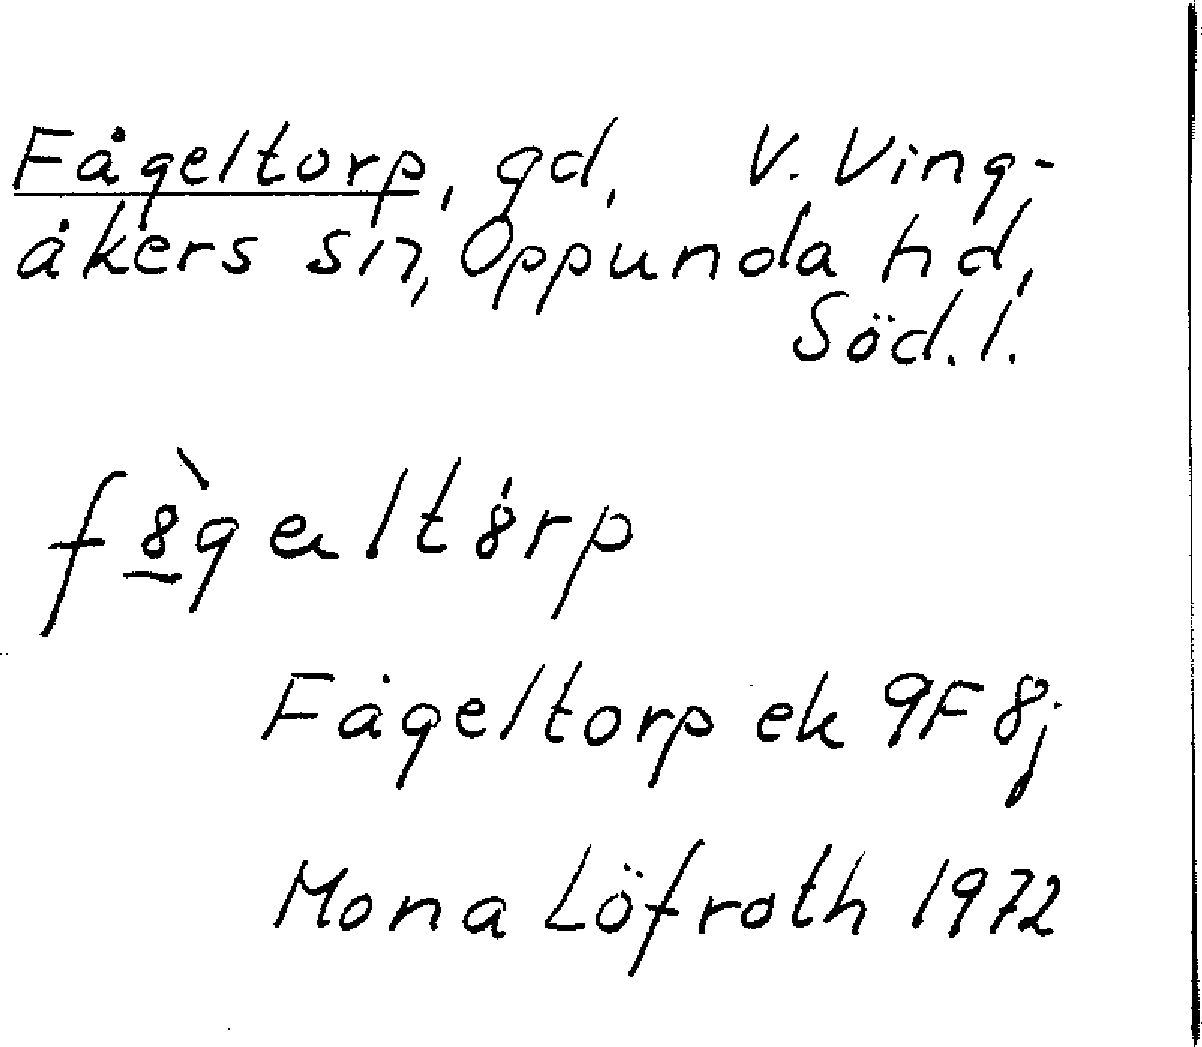 Fågeltorp, gd, V. Ving-
åkers sn, Oppunda hd,
Söd. l.
f8̲̀galtȣ́rp
Fågeltorp ek 9F 8j
Mona Löfroth 1972